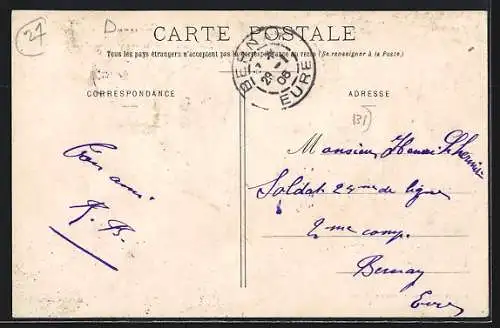 27
CARTE POSTALE
Tous les pays étrangers n'acceptent pas la correspondance au recto (Se renseigner à la Poste.)
BERNAY
29 -1
08
EURE
CORRESPONDANCE
ADRESSE
(31)
Ton ami
Monsieur Henri
Soldat 24me de ligne
2me comp.
Bernay
Eure